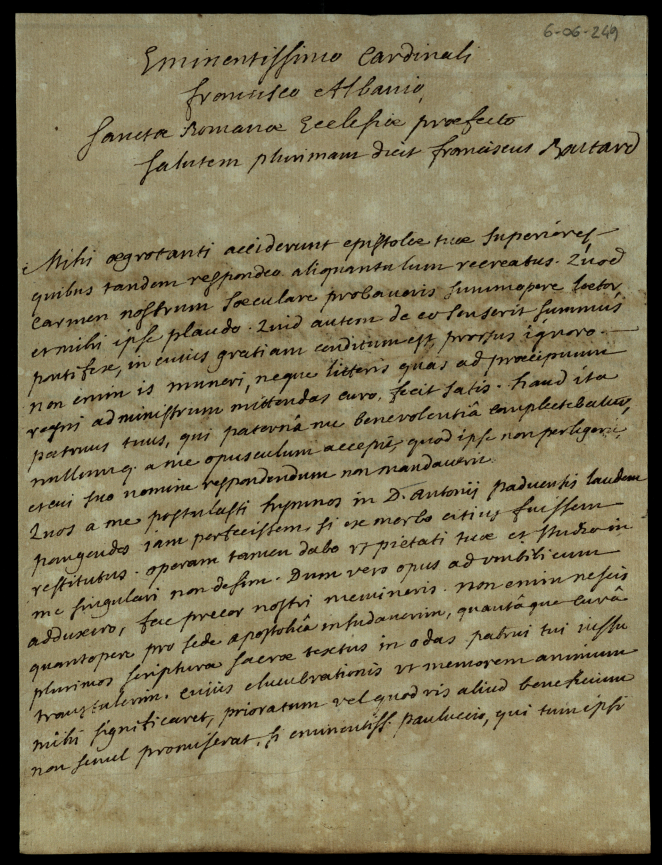 6-06-249
Eminentissimo Cardinali
Francisco Albanio,
Sanctæ Romanæ Ecclesiæ præfecto
Salutem plurimam dicit Franciscus Bastard
Mihi ægrotanti acciderunt epistolæ tuæ superiores
quibus tandem respondeo aliquantulum recreatus. Quod
carmen nostrum sæculare probaveris summopere lætor
et mihi ipse plaudo. Quid autem de eo senserit summus
pontifex, in cuius gratiam conditum est prorsus ignoro.
non enim is muneri, neque litteris quas ad præcipuum
regni administrum mittendas curo, fecit satis. haud ita
patruus tuus, qui paternâ me benevolentiâ complectebatur,
nullumq. a me opusculum accepit, quod ipse non perlegerit,
et cui suo nomine respondendum non mandaverit.
Quos a me postulasti hymnos in D. Antonii paduensis laudem
pangendos iam perfecissem, si ex morbo citius fuissem
restitutus. operam tamen dabo ut pietati tuæ et studio in
me singulari non desim. Dum vero opus ad umbilicum
adduxero, fac precor nostri memineris. non enim nescis
quantopere pro sede apostolicâ insudaverim, quantâque curâ
plurimos scripturæ sacræ textus in odas patrui tui iussu
transtulerim. cuius elucubrationis ut memorem animum
mihi significaret, prioratum vel quodvis aliud beneficium
non semel promiserat, si eminentiss. pauluccio, qui tum ipsi